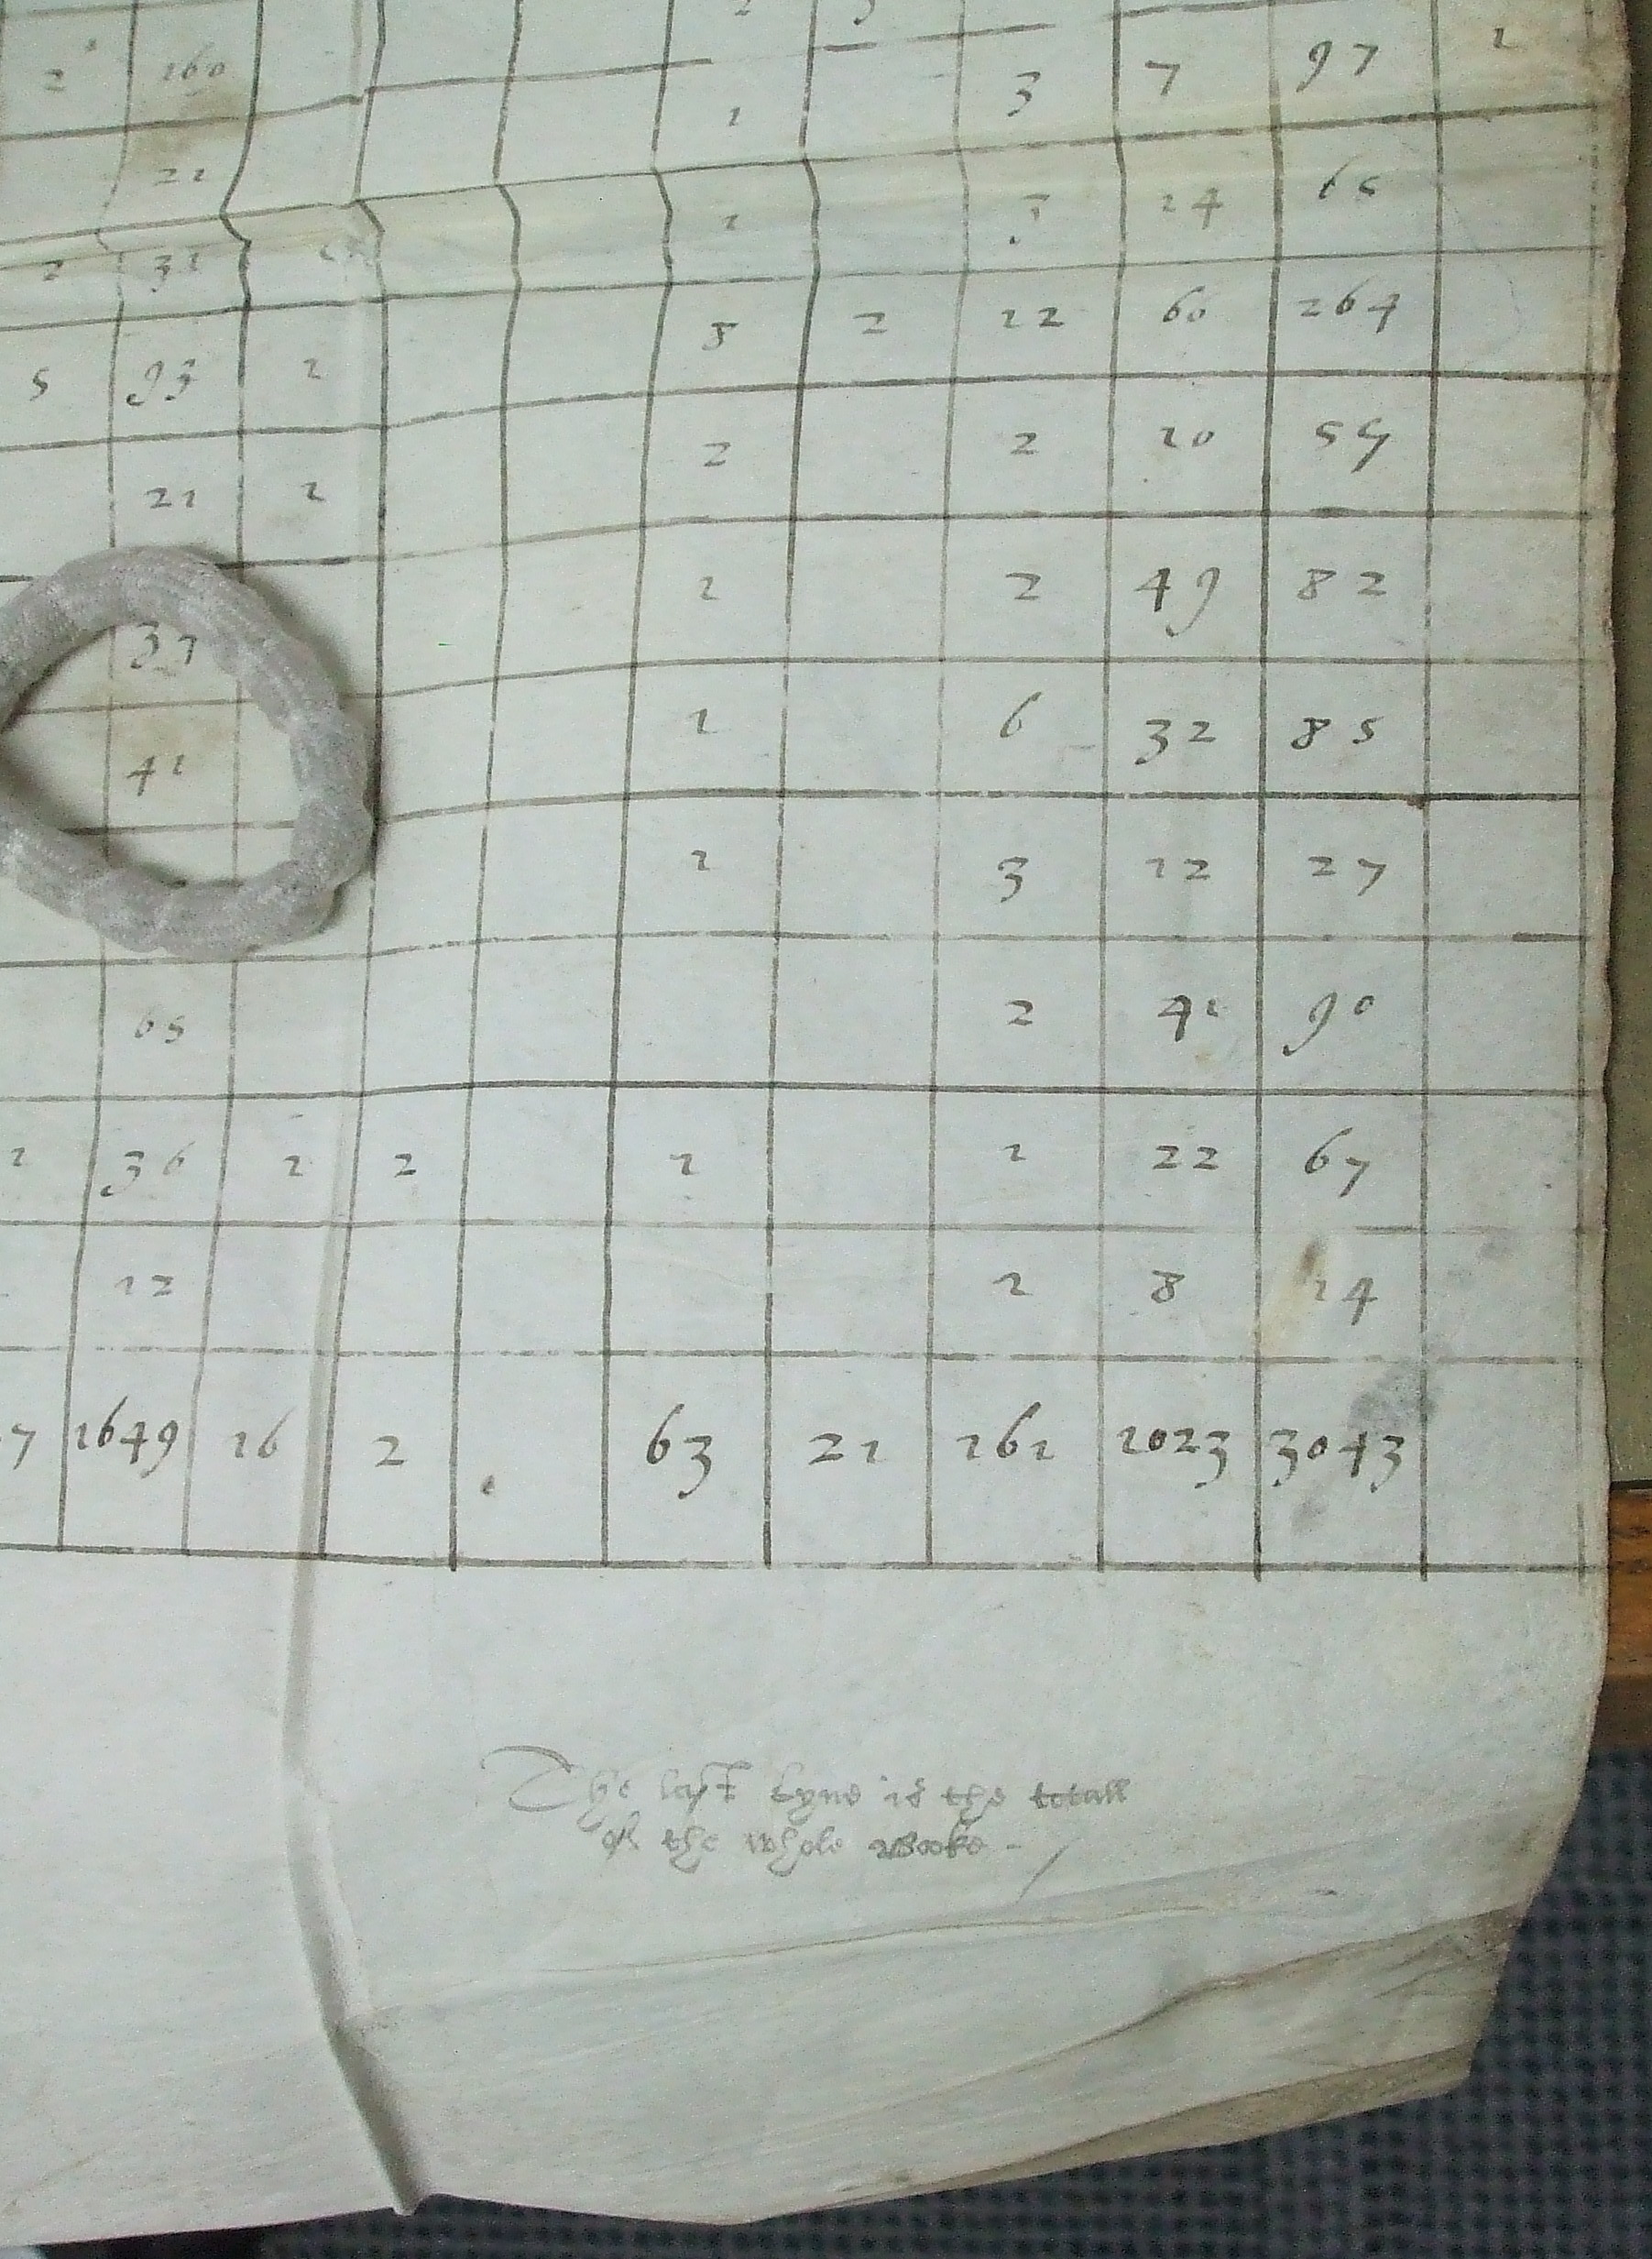 2 160
21 1 3 7 97 1
2 31 1 14 65
5 93 1 8 2 12 60 264
21 1 2 2 10
33 1 2 49 82
41 1 6 32 85
1 3 12 27
65 2 41 90
1 36 1 2 1 1 22 67
12 1 8 14
7 1649 16 2 63 21 161 1023 3043
The last lyne is the totall
of the whole Booke -/